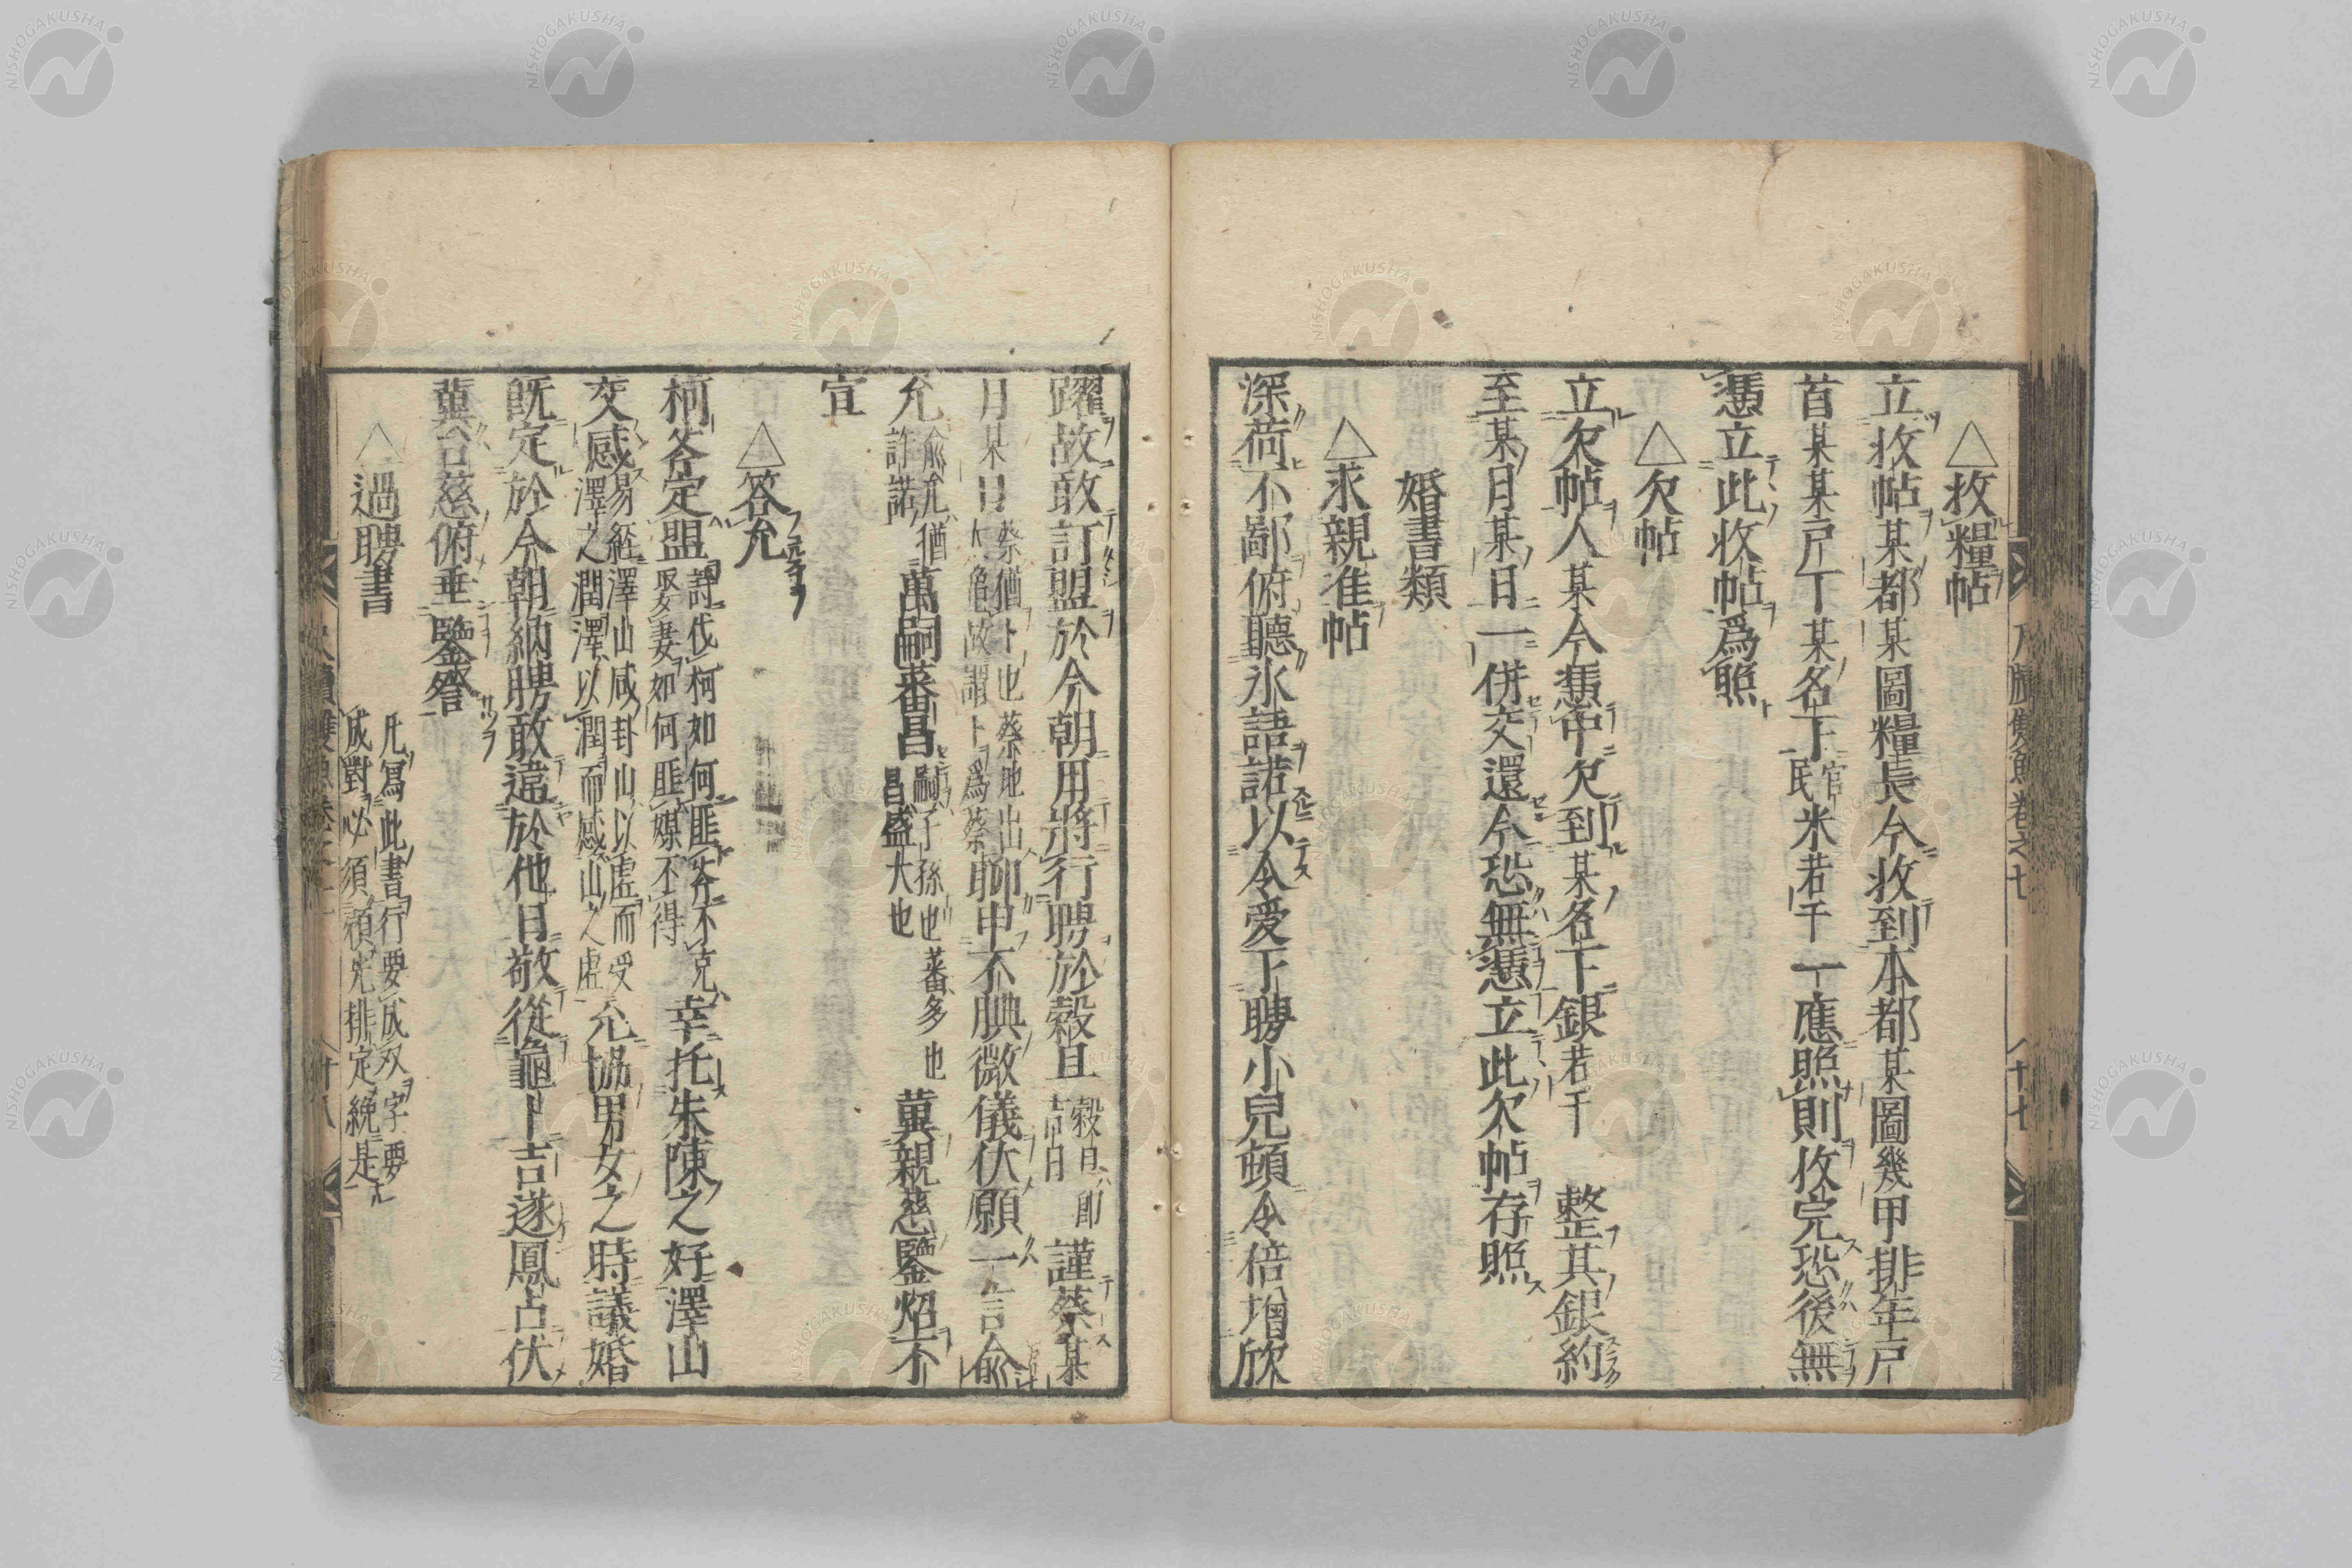 △收糧帖
立收帖某都某圖糧長今收到本都某圖幾甲排年戸
首某某戸丁某名下官民米若干一應照則收完恐後無
憑立此收帖爲照
△欠帖
立欠帖人某今憑中欠到某名下銀若干整其銀約
至某月某日一併交還今恐無憑立此欠帖存照
婚書類
△求親准帖
深荷不鄙俯聽氷語諾以令愛下聘小兒頓令倍増欣
躍故敢訂盟於今朝用將行聘於穀旦穀旦即吉日謹蔡某
月某日蔡猶卜也蔡地出大龜故謂卜爲蔡聊申不腆微儀伏願一言兪
允兪允猶許諾萬嗣蕃昌嗣子孫也蕃多也昌盛大也冀親慈鑒炤不
宣
△答允
柯斧定盟詩伐柯如何匪斧不克娶妻如何匪媒不得幸托朱陳之好澤山
交感易經澤山咸卦山以虚而受澤之潤澤以潤而感山之虚允協男女之時議婚
既定於今朝納聘敢違於他日敬從龜卜吉遂鳳占伏
冀台慈俯垂鑒詧
△過聘書凡冩此書行要成双字要成對必須預先排定纔是